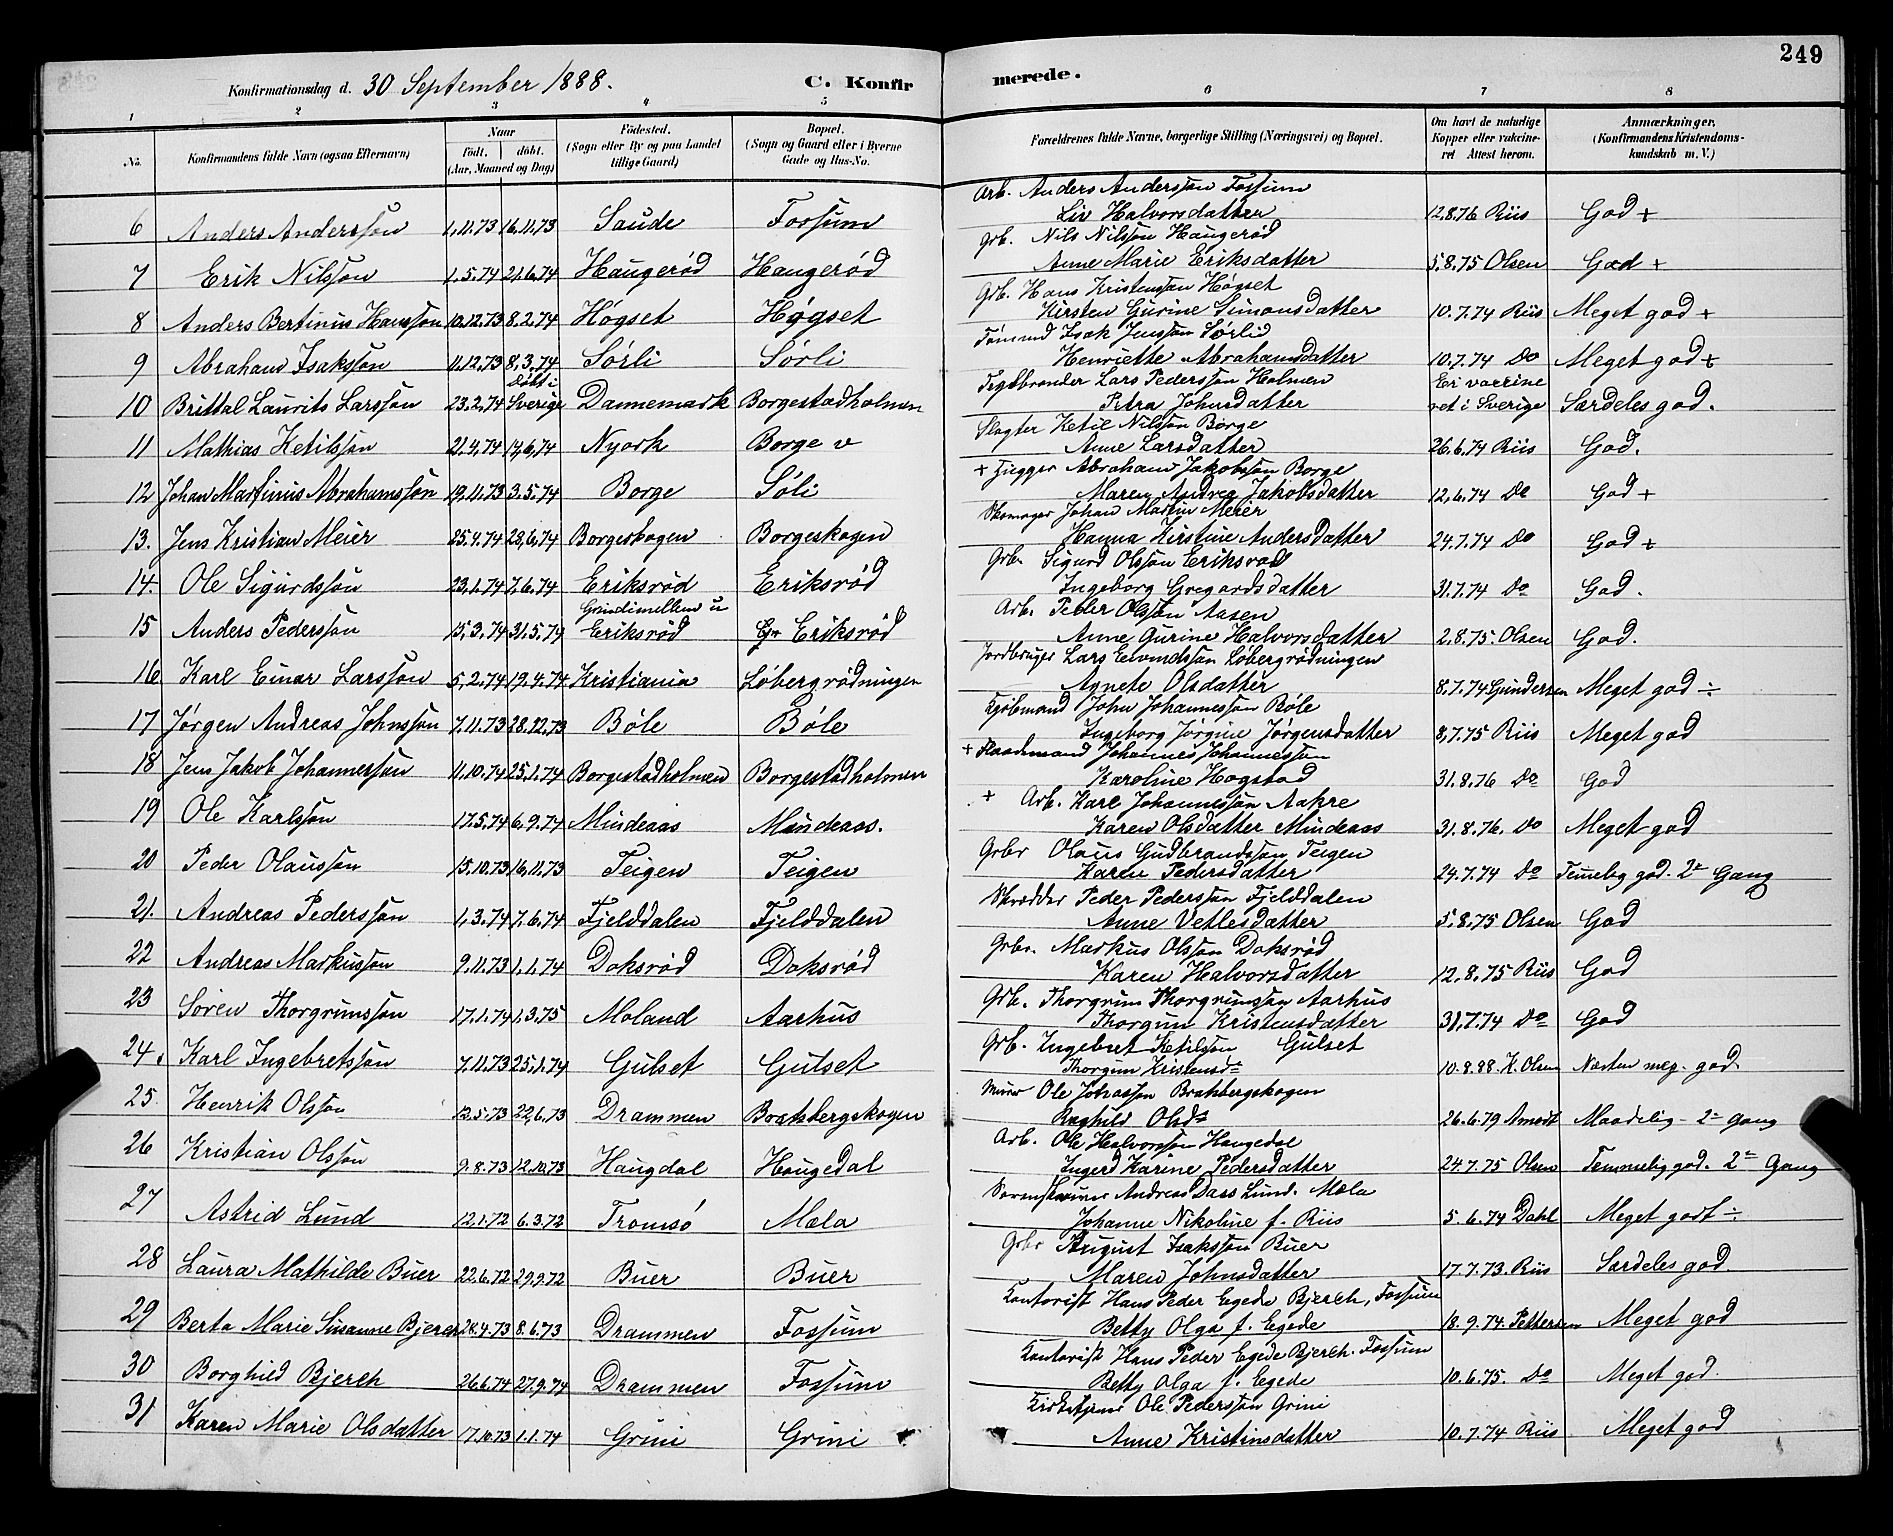 249
Konfirmationsdag d. 30 September 1888. C. Konfirmerede.
1 2 3 4 5 6 7 8
No. Konfirmandens fulde Navn (ogsaa Efternavn) Naar Födt. döbt. (Aar, Maaned og Dag) Födested. (Sogn eller By og paa Landet tillige Gaard) Bopæl. (Sogn og Gaard eller i Byerne Gade og Hus-No. Forældrenes fulde Navne, borgerlige Stilling (Næringsvei) og Bopæl. Om havt de naturlige Kopper eller vakcineret Attest herom. Anmærkninger. (Konfirmandens Kristendomskundskab m. V.)
Arb. Anders Anderssøn Fossum
6 Anders Anderssøn 1.11.73 16.11.73 Saude Fossum Liv Halvorsdatter 12.8.76 Riis God +
Grb. Nils Nilssøn Haugerød
7 Erik Nilssøn 1.5.74 21.6.74 Haugerød Haugerød Anne Marie Eriksdatter 5.8.75 Olsen God +
Grb. Hans Kristenssøn Høgset
8 Anders Bertinius Hanssøn 10.12.73 8.2.74 Høgset Høgset Kirsten Gurine Simonsdatter 10.7.74 Riis Meget god +
Tømmd Isak Jenssøn Sørli
9 Abraham Isakssøn 11.12.73 8.3.74 Sørli Sørli Henriette Abrahamsdatter 10.7.74 Do Meget god +
Teglbrænder Lars Pederssøn Holmen
10 Brittal Laurits Larssøn 23.2.74 Döbt i Sverige Dannemark Borgestadholmen Petra Johnsdatter Er vaccineret i Sverige Særdeles god.
Slagter Ketil Nilssøn Borge
11 Mathias Ketilssøn 21.4.74 14.6.74 Nyork Borge v Anne Larsdatter 26.6.74 Riis God.
+ Abraham Jakobssøn Borge
12 Johan Martinius Abrahamssøn 19.11.73 3.5.74 Borge Søli Maren Andrea Jakobsdatter 12.6.74 Do God +
Skomager Johan Martin Meier
13. Jens Kristian Meier 25.4.74 28.6.74 Borgeskogen Borgeskogen Hanna Kirstine Andersdatter 24.7.74 Do God +
Grb. Sigurd Olssøn Eriksrød
14. Ole Sigurdssøn 23.1.74 7.6.74 Eriksrød Eriksrød Ingeborg Gregardsdatter 31.7.74 Do God.
Arb. Peder Olssøn Aasen
15 Anders Pederssøn 15.3.74 31.5.74 Grindimellem u Eriksrød Gr Eriksrød Anne Gurine Halvorsdatter 2.8.75. Olsen God.
Jordbruger Lars Eivindssøn Løbergrødningen
16. Karl Einar Larssøn 5.2.74 19.4.74 Kristiania Løbergrødningen Agnete Olsdatter 8.7.74 Gundersen Meget god ÷
Kjøbmand John Johannessøn Bøle
17 Jørgen Andreas Johnssøn 7.11.73 28.12.73 Bøle Bøle Ingeborg Jørgine Jørgensdatter 8.7.75 Riis Meget god
+ Flaademand Johannes Johannessøn
18 Jens Jakob Johannessøn 11.10.74 25.1.74 Borgestadholmen Borgestadholmen Karoline Hogstad 31.8.76 Do God
+ Arb. Karl Johannessøn Aakre
19 Ole Karlssøn 17.5.74 6.9.74 Mindeaas Mindeaas. Karen Olsdatter Mindeaas 31.8.76. Do Meget god
Grbr Olaus Gudbrandssøn Teigen
20 Peder Olaussøn 15.10.73 16.11.73 Teigen Teigen Karen Pedersdatter 24.7.74 Do Temmelig god. 2n Gang
Skrædder Peder Pederssøn Fjelddalen
21. Andreas Pederssøn 1.3.74 7.6.74 Fjelddalen Fjelddalen Anne Vetlesdatter 5.8.75 Olsen God
Grbr. Markus Olssøn Doksrød
22 Andreas Markussøn 9.11.73 1.1.74 Doksrød Doksrød Karen Halvorsdatter 12.8.75 Riis God
Grb. Thorgrim Thorgrimssøn Aarhus
23 Søren Thorgrimssøn 17.1.74 1.3.75 Moland Aarhus Thorgun Kristensdatter 31.7.74 Do God
Grb. Ingebret Ketilssøn Gulset
24. Karl Ingebretssøn 7.11.73 25.1.74 Gulset Gulset Thorgun Kristensd- 10.8.88 K. Olsen Næsten meg. god.
Murer Ole Johnssøn Bratsbergskogen
25. Henrik Olssøn 12.5.73 22.6.73 Drammen Bratsbergskogen Raghild Olsd- 26.6.79 Amodt Maadelig - 2n gang
Arb. Ole Halvorssøn Haugedal
26 Kristian Olssøn 9.8.73 12.10.73 Haugdal Haugedal Ingerd Karine Pedersdatter 24.7.75 Olsen Temmelig god. 2n Gang
Andreas Dass Lund. Mæla
27 Astrid Lund 12.1.72 6.3.72 Tromsø Mæla Johanne Nikoline f. Riis 5.6.74 Dahl Meget godt ÷
Grbr August Isakssøn Buer
28 Laura Mathilde Buer 22.6.72 29.9.72 Buer Buer Maren Johnsdatter 17.7.73. Riis Særdeles god.
Kontorist Hans Peder Egede Bjerch, Fossum
29 Berta Marie Susanne Bjerch 24.4.73 8.6.73 Drammen Fossum Betty Olga f. Egede 18.9.74 Pettersen Meget god
Kontorist Hans Peder Egede Bjerch. Fossum
30 Borghild Bjerch 26.6.74 27.9.74 Drammen Fossum Betty Olga f. Egede 10.6.75. Do Meget god.
Kirketjener Ole Pederssøn Grini
31 Karen Marie Olsdatter 17.10.73 1.1.74 Grini Grini Anne Kristinsdatter 10.7.74 Riis Meget god